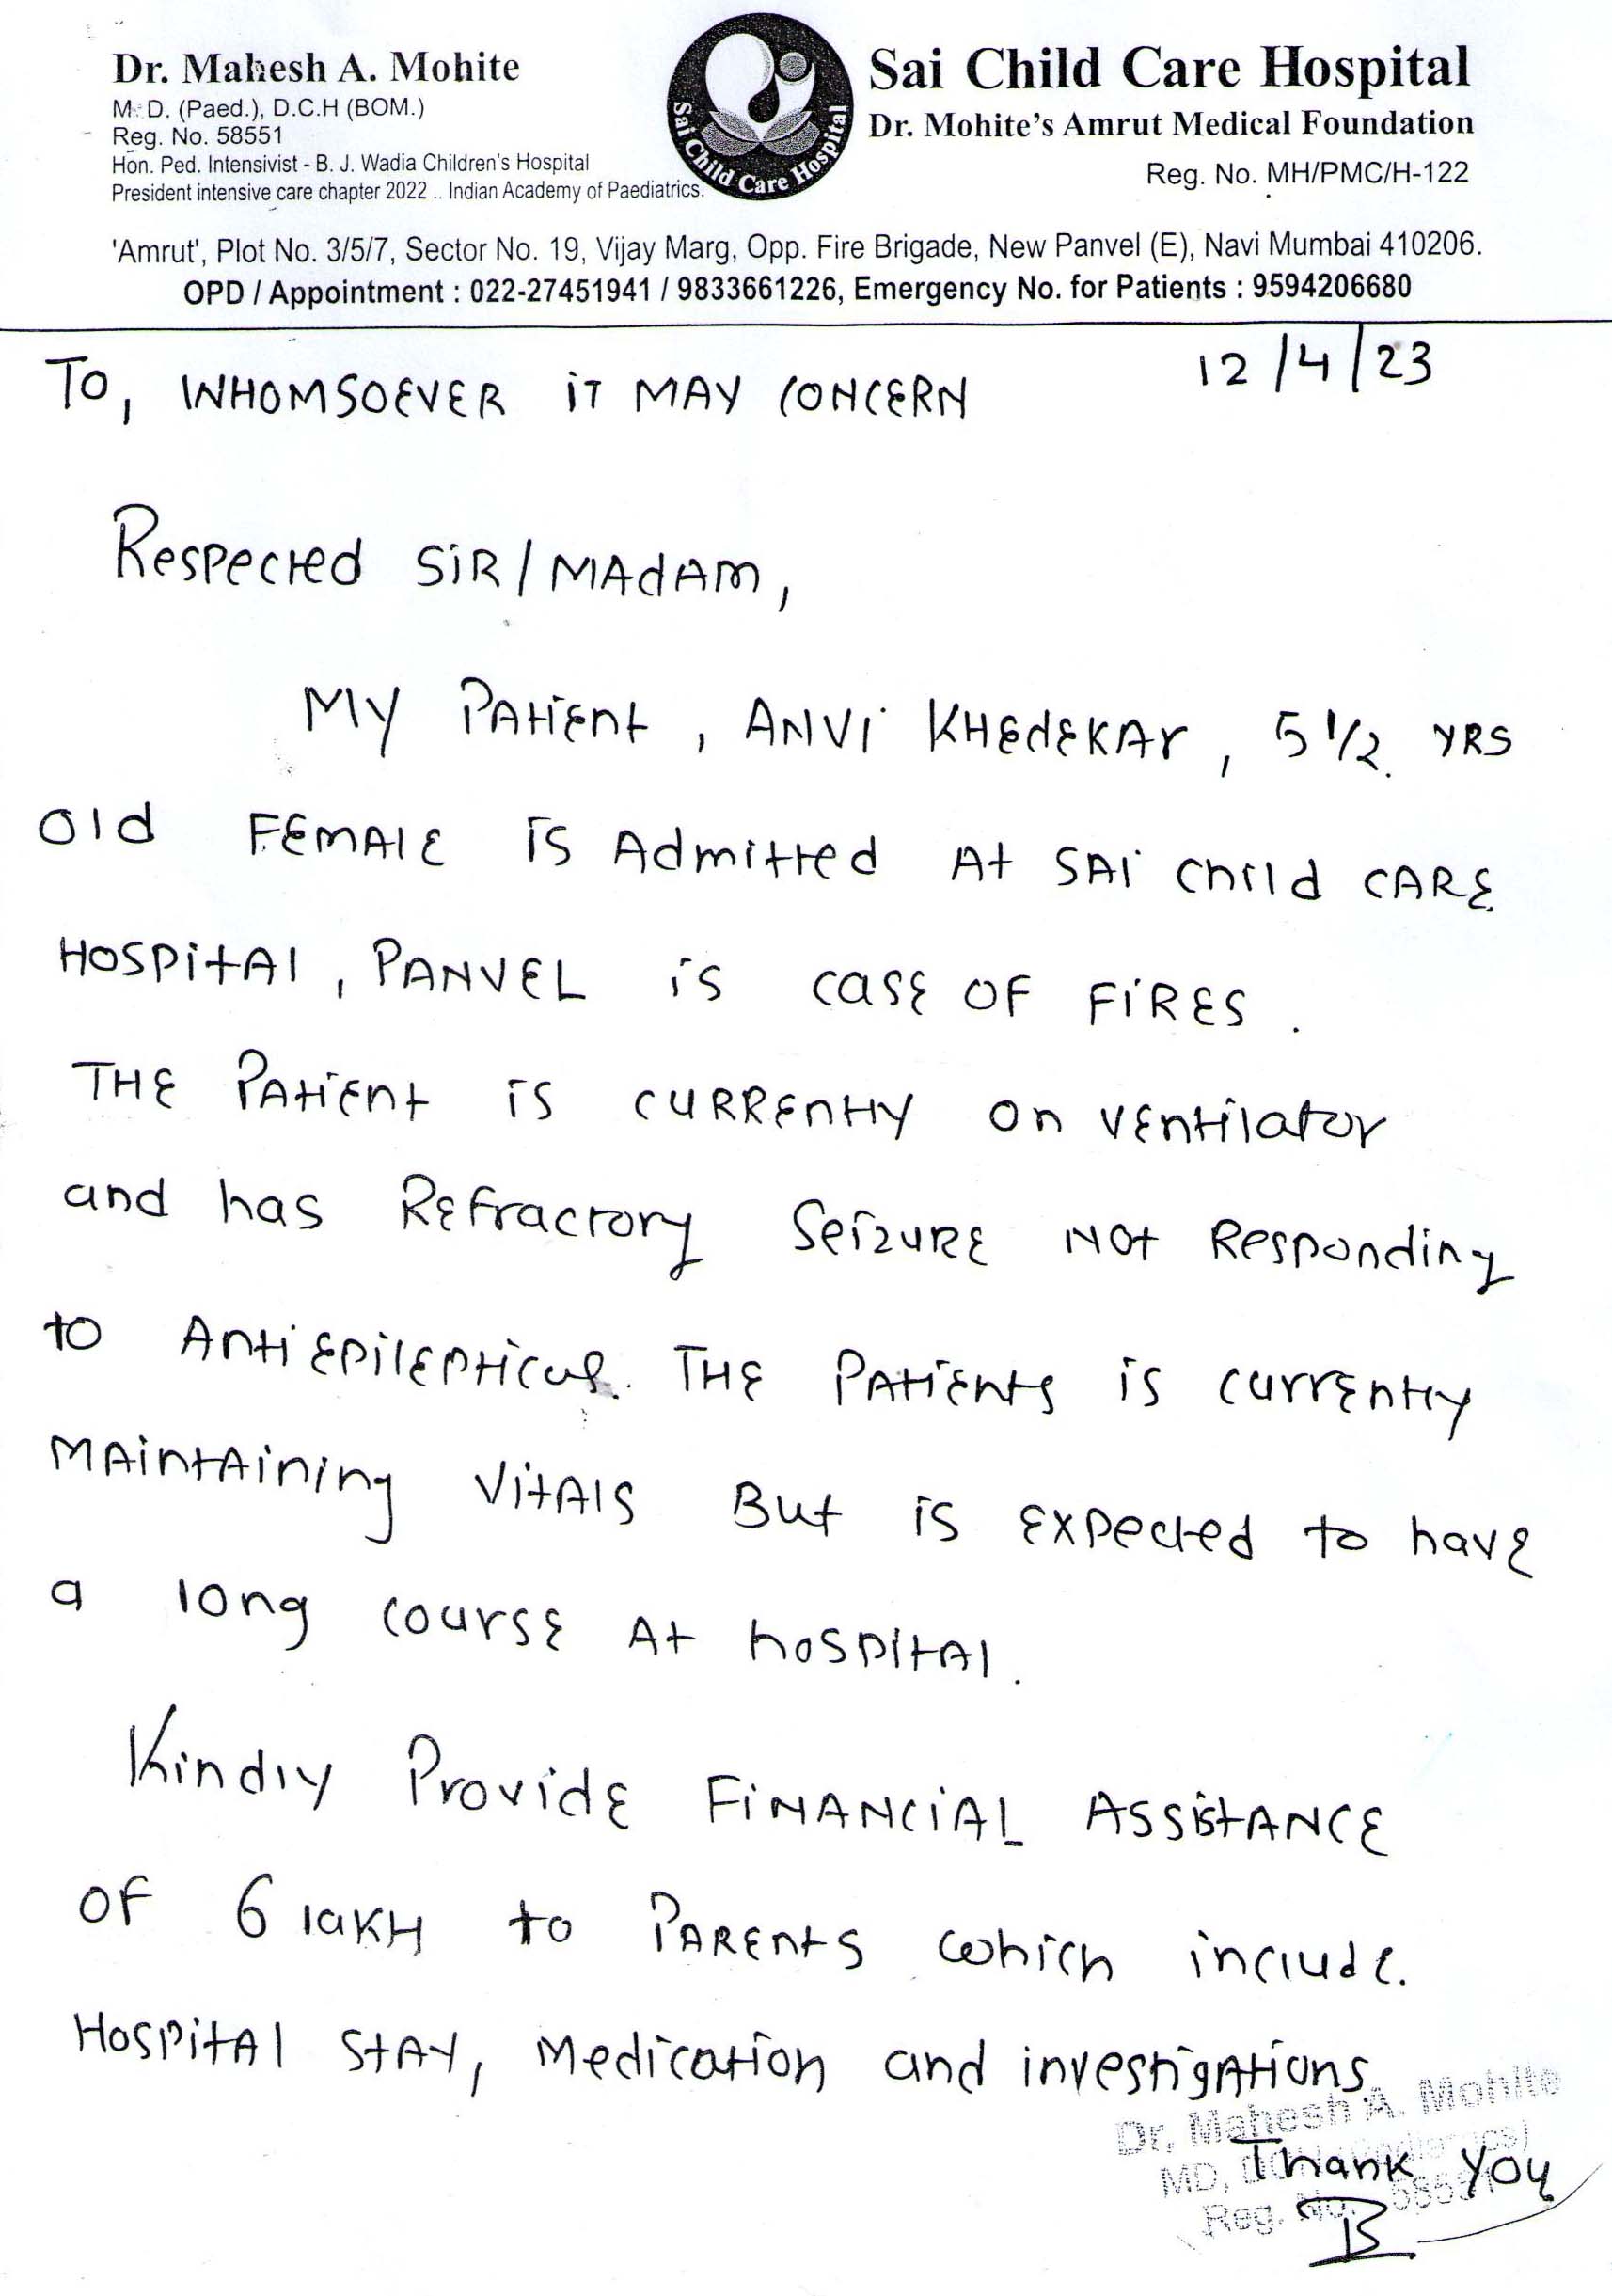 Dr. Mahesh A. Mohite
M. D. (Paed.), D.C.H (BOM.)
Reg. No. 58551
Hon. Ped. Intensivist - B. J. Wadia Children's Hospital
President intensive care chapter 2022 .. Indian Academy of Paediatrics.
Sai Child Care Hospital
Sai Child Care Hospital
Dr. Mohite's Amrut Medical Foundation
Reg. No. MH/PMC/H-122
'Amrut', Plot No. 3/5/7, Sector No. 19, Vijay Marg, Opp. Fire Brigade, New Panvel (E), Navi Mumbai 410206.
OPD / Appointment : 022-27451941 / 9833661226, Emergency No. for Patients : 9594206680
12/4/23
To, WHOMSOEVER iT MAY CONCERN
Respected SiR/MAdAm,
My PAtient, ANVi KHEdEKAr, 5 1/2 YRS
old FEMAlE is Admitted At SAi child CARE
HOSPitAl, PANVEL is case OF FiRES.
THE PAtient is cuRRently on ventilator
and has Refractory SeizuRE Not Responding
to Anti epileptics. THE PAtients is currently
MAintAining VitAls But is expected to have
a long course At hospitAl.
Kindly Provide FiNANCiAL ASSistANCE
OF 6 laKH to PARents which include.
HospitAl StAy, Medication and investigAtions.
Dr. Mahesh A. Mohite
MD,
Reg. No. 58551
Thank You